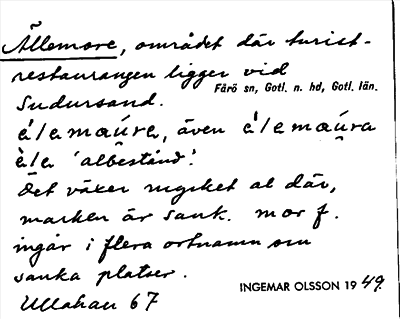 Ällemore, området där turist-
restaurangen ligger vid
Sudursand.
Fårö sn, Gotl. n. hd, Gotl. län.
álemaúra, även álemaúra
èle 'albestånd'.
Det växer mycket al där,
marken är sank. mor f.
ingår i flera ortnamn om
sanka platser.
Ullahau 67
INGEMAR OLSSON 1949.